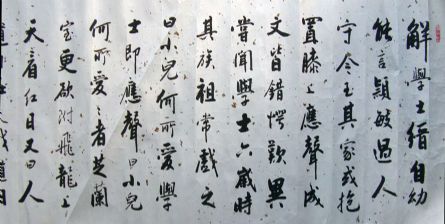 解學士縉自幼
能言穎敏過人
守令至其家或抱
置膝上應聲成
文皆錯愕歎異
嘗聞學士六歲時
其族祖常戲之
曰小兒何所愛學
士即應聲曰小兒
何所愛々者芝蘭
室更欲附飛龍上
天看紅日又曰人